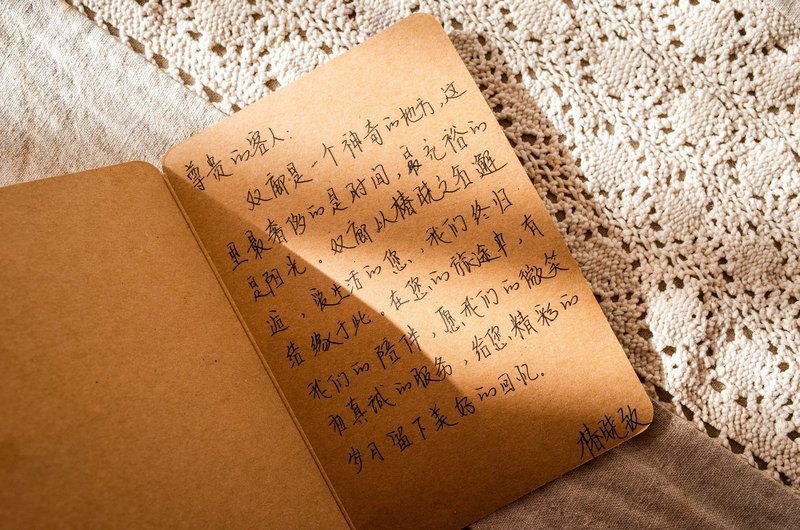 尊贵的客人:
双廊是一个神奇的地方,这
里最奢侈的是时间,最充裕的
是阳光。双廊以椿晓之名邂
逅,爱生活的您,我们终归
结缘于此。在您的旅途中,有
我们的陪伴,愿我们的微笑
和真诚的服务,给您精彩的
岁月留下美好的回忆.
椿晓敬